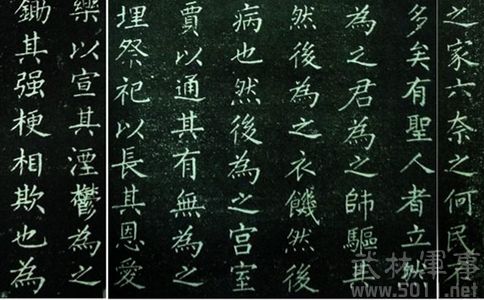 之家六奈之何民不
多矣有聖人者立然
為之君為之師驅其
然後為之衣饑然後
病也然後為之宫室
賈以通其有無為之
埋祭祀以長其恩愛
樂以宣其湮鬱為之
鋤其强梗相欺也為
武林軍事